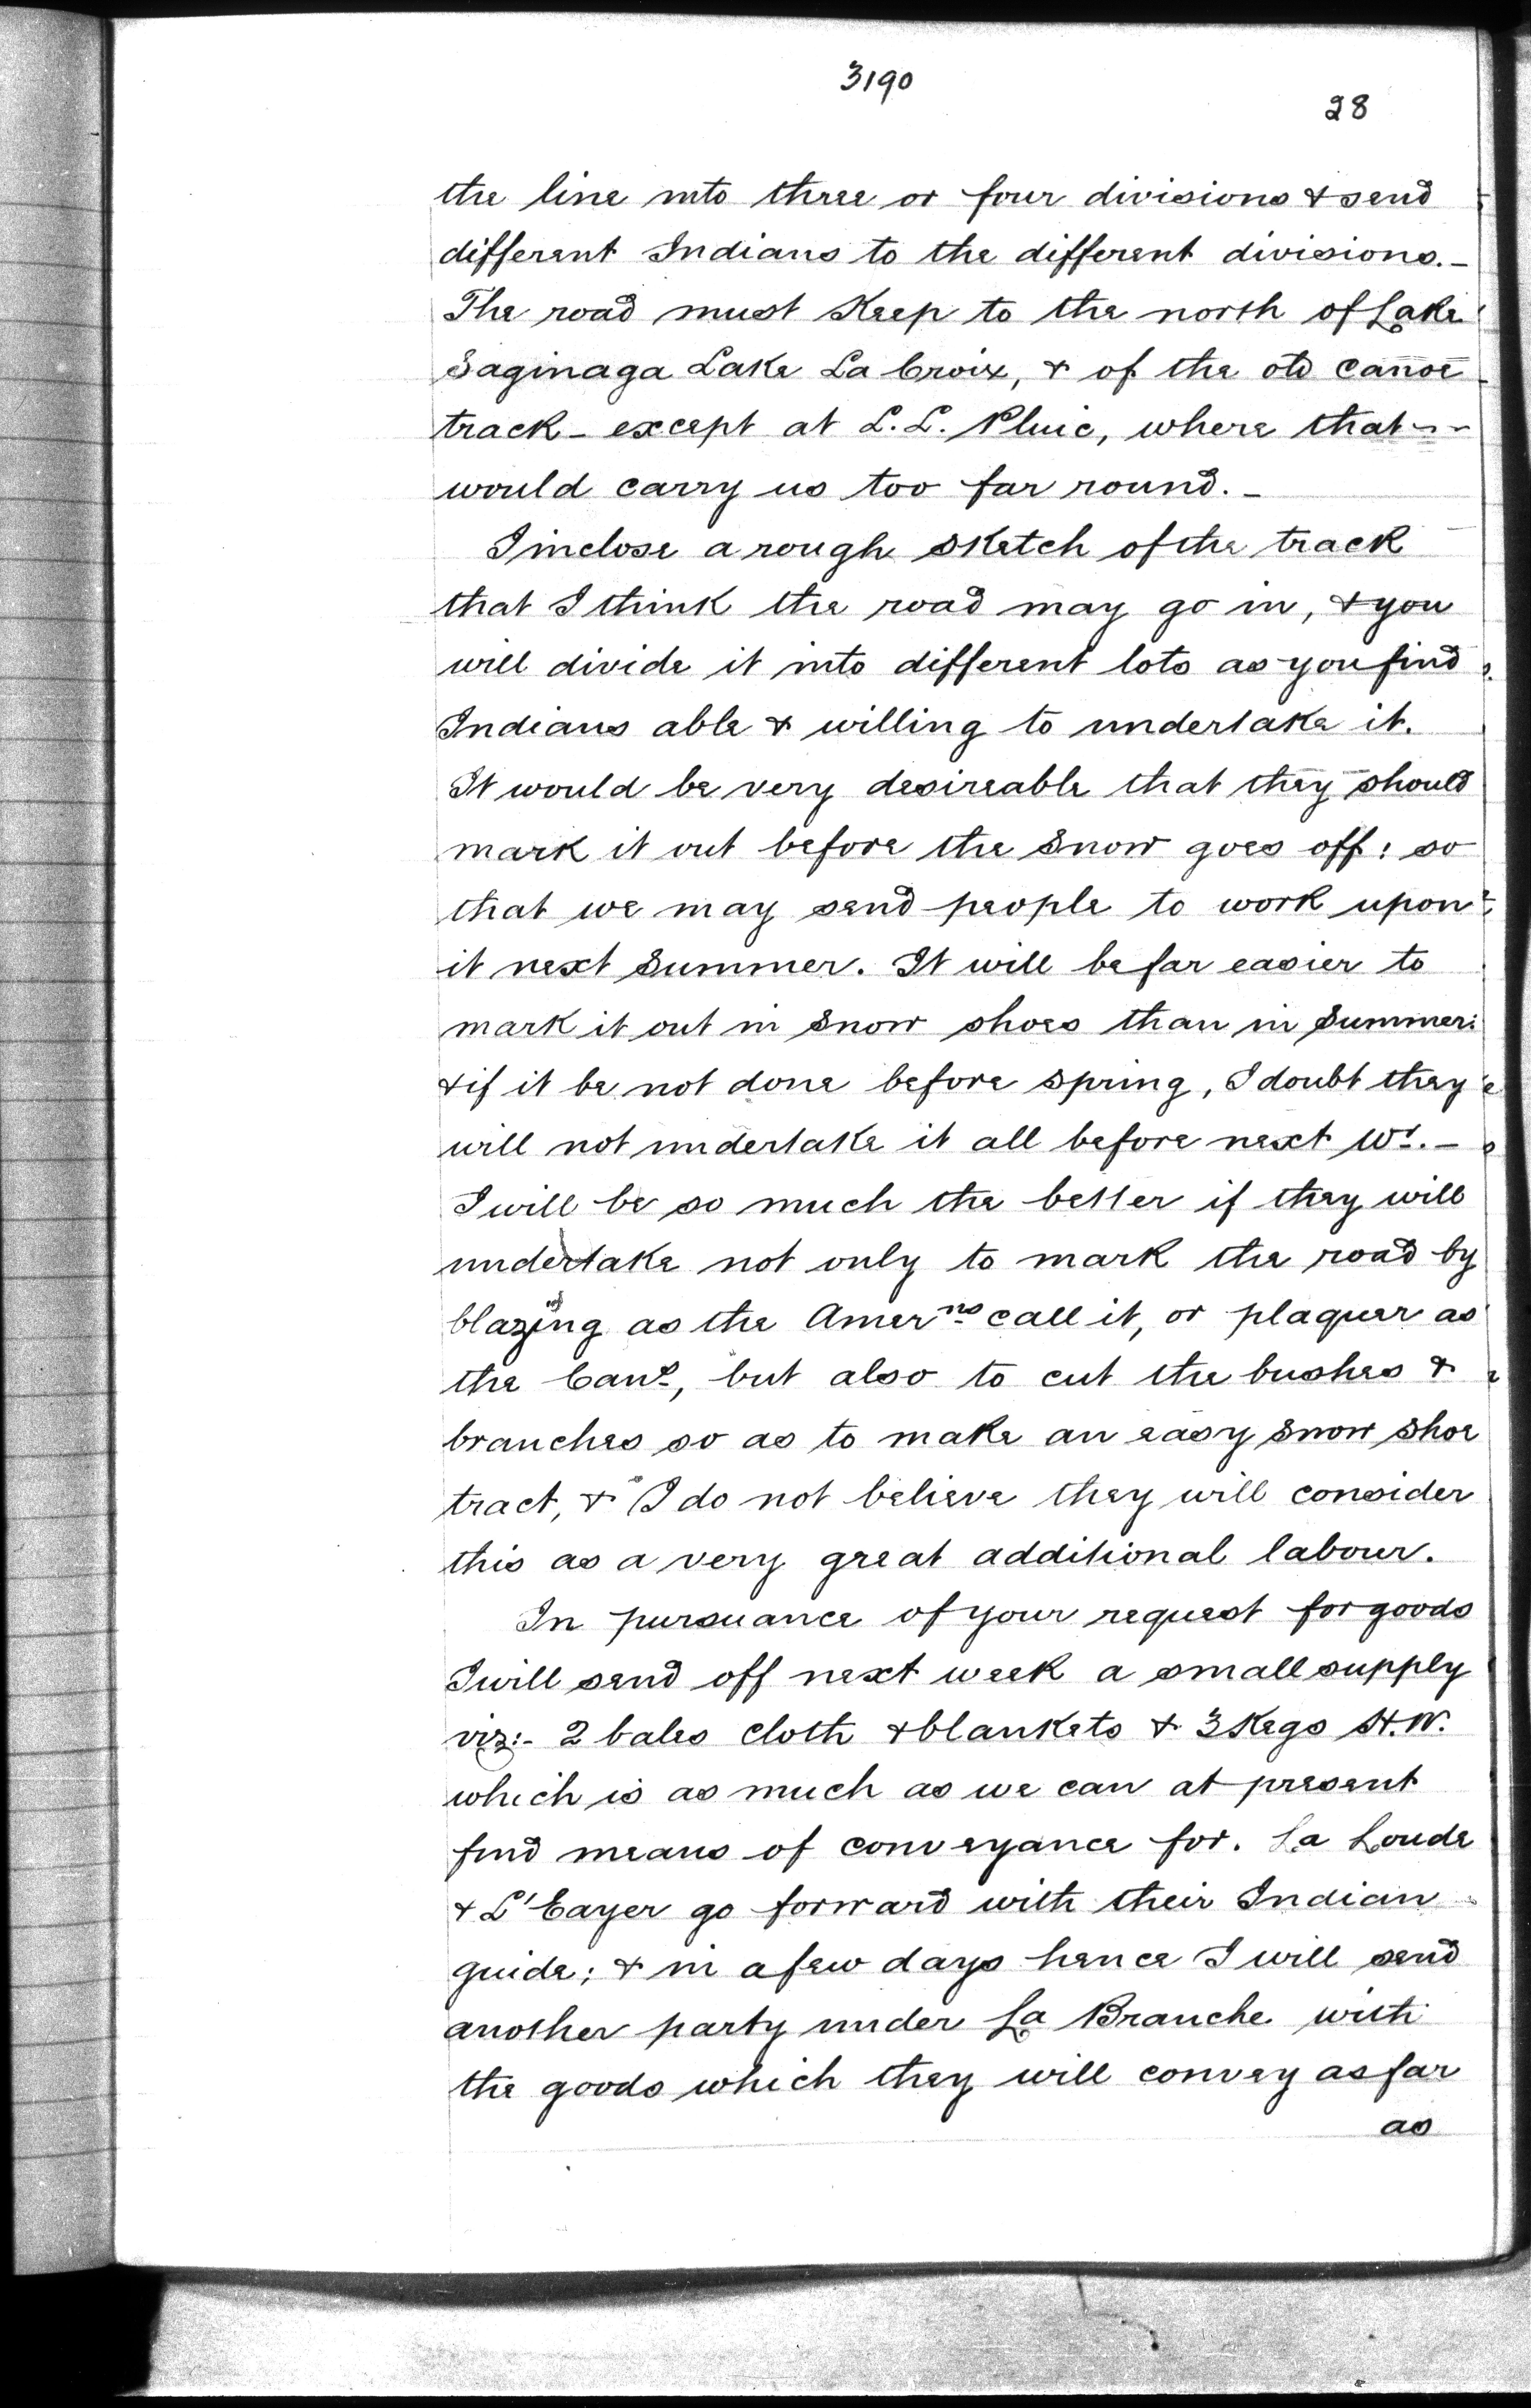 3190
28
the line into three or four divisions & send
different Indians to the different divisions.-
The road must Keep to the north of Lake
Saginaga Lake La Croix, & of the old canoe
track - except at L. L. Pluie, where that
would carry us too far round.-
I inclose a rough sketch of the track
that I think the road may go in, & you
will divide it into different lots as you find
Indians able & willing to undertake it.
It would be very desireable that they should
mark it out before the snow goes off: so
that we may send people to work upon
it next Summer. It will be far easier to
mark it out in snow shoes than in Summer:
& if it be not done before spring, I doubt they
will not undertake it all before next Wr.-
I will be so much the better if they will
undertake not only to mark the road by
blazing as the Amerns call it, or plaquer as
the Cans, but also to cut the bushes &
branches so as to make an easy snow shoe
tract, & I do not believe they will consider
this as a very great additional labour.
In pursuance of your request for goods
I will send off next week a small supply
viz:- 2 bales cloth & blankets & 3 Kegs H.W.
which is as much as we can at present
find means of conveyance for. La Loude
& L'Eayer go forward with their Indian
guide; & in a few days hence I will send
another party under La Branche with
the goods which they will convey as far
as